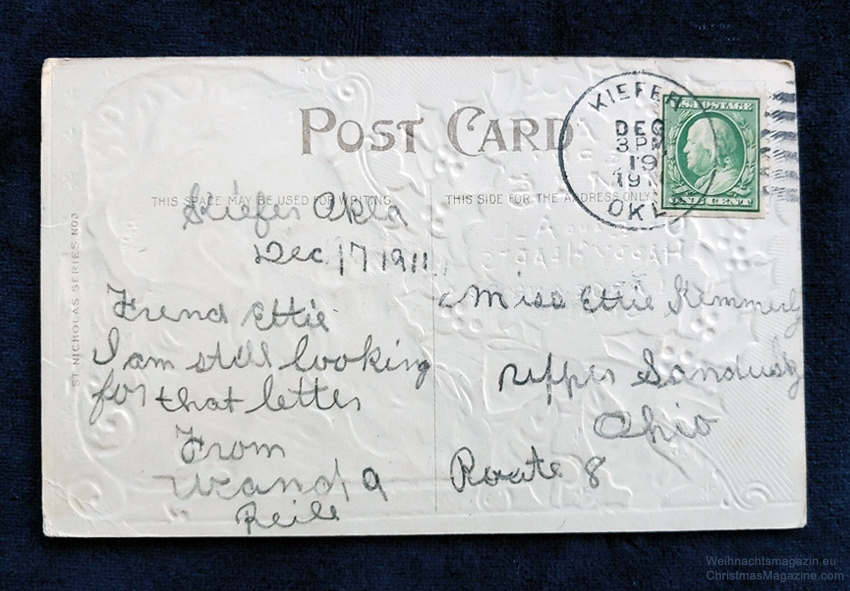 POST CARD
THIS SPACE MAY BE USED FOR WRITING
THIS SIDE FOR THE ADDRESS ONLY
KIEFER
DEC
3 PM
19
191
OKLA
U.S. POSTAGE
ONE CENT
ST. NICHOLAS SERIES NO 3
Kiefer Okla
Dec 17 1911
Frend Ettie
I am still looking
for that letter
From
Wanda
Miss Ettie Kemmerly
Upper Sandusky
Ohio
Route 8
HAPPY HEARTS
Weihnachtsmagazin.eu
ChristmasMagazine.com